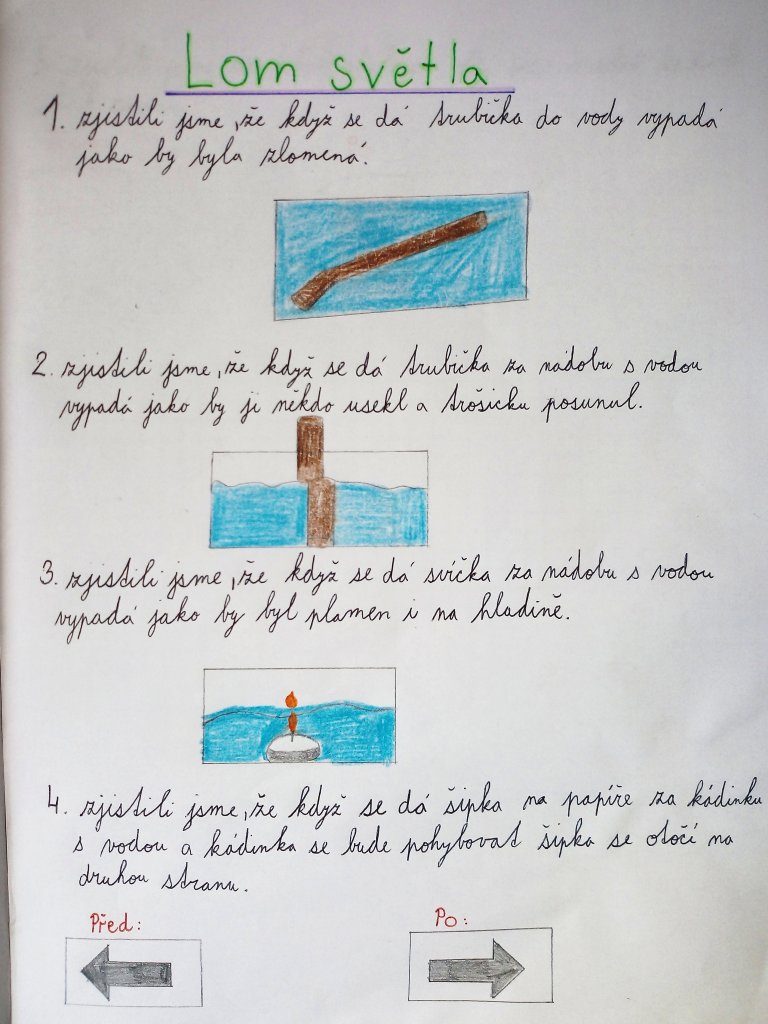 Lom světla
1. zjistili jsme, že když se dá trubička do vody vypadá
jako by byla zlomená.
2. zjistili jsme, že když se dá trubička za nádobu s vodou
vypadá jako by ji někdo usekl a trošicku posunul.
3. zjistili jsme, že když se dá svíčka za nádobu s vodou
vypadá jako by byl plamen i na hladině.
4. zjistili jsme, že když se dá šipka na papíře za kádinku
s vodou a kádinka se bude pohybovat šipka se otočí na
druhou stranu.
Před: Po: